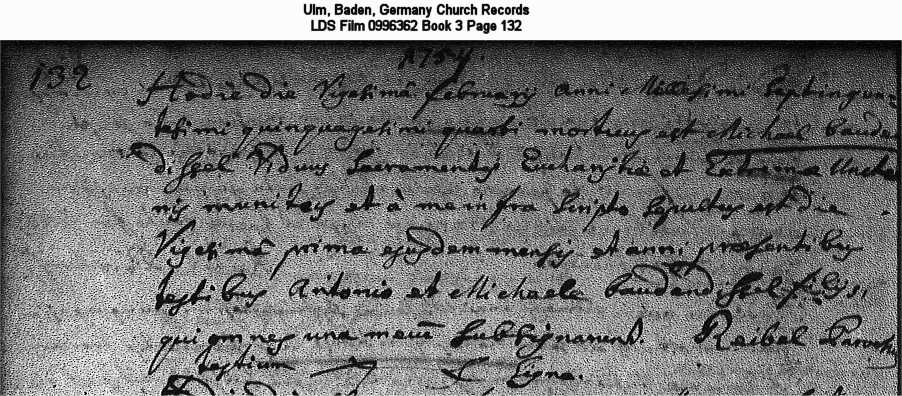 Ulm, Baden, Germany Church Records
LDS Film 0996362 Book 3 Page 132
1754.
132
Hodie die Vigesimâ februarij anni Millesimi septingen
tesimi quinquagesimi quarti mortuus est Michael baudend
dissel Viduus Sacramentis Eucharistiæ et Extremæ Unctio
nis munitus et à me infra scripto sepultus est die
Vigesimâ prima ejusdem mensis et anni præsentibus
testibus Antonio et Michaele baudendissel filijs,
qui omnes una mecum subsignarunt. Reibel Parochus
testium signa.